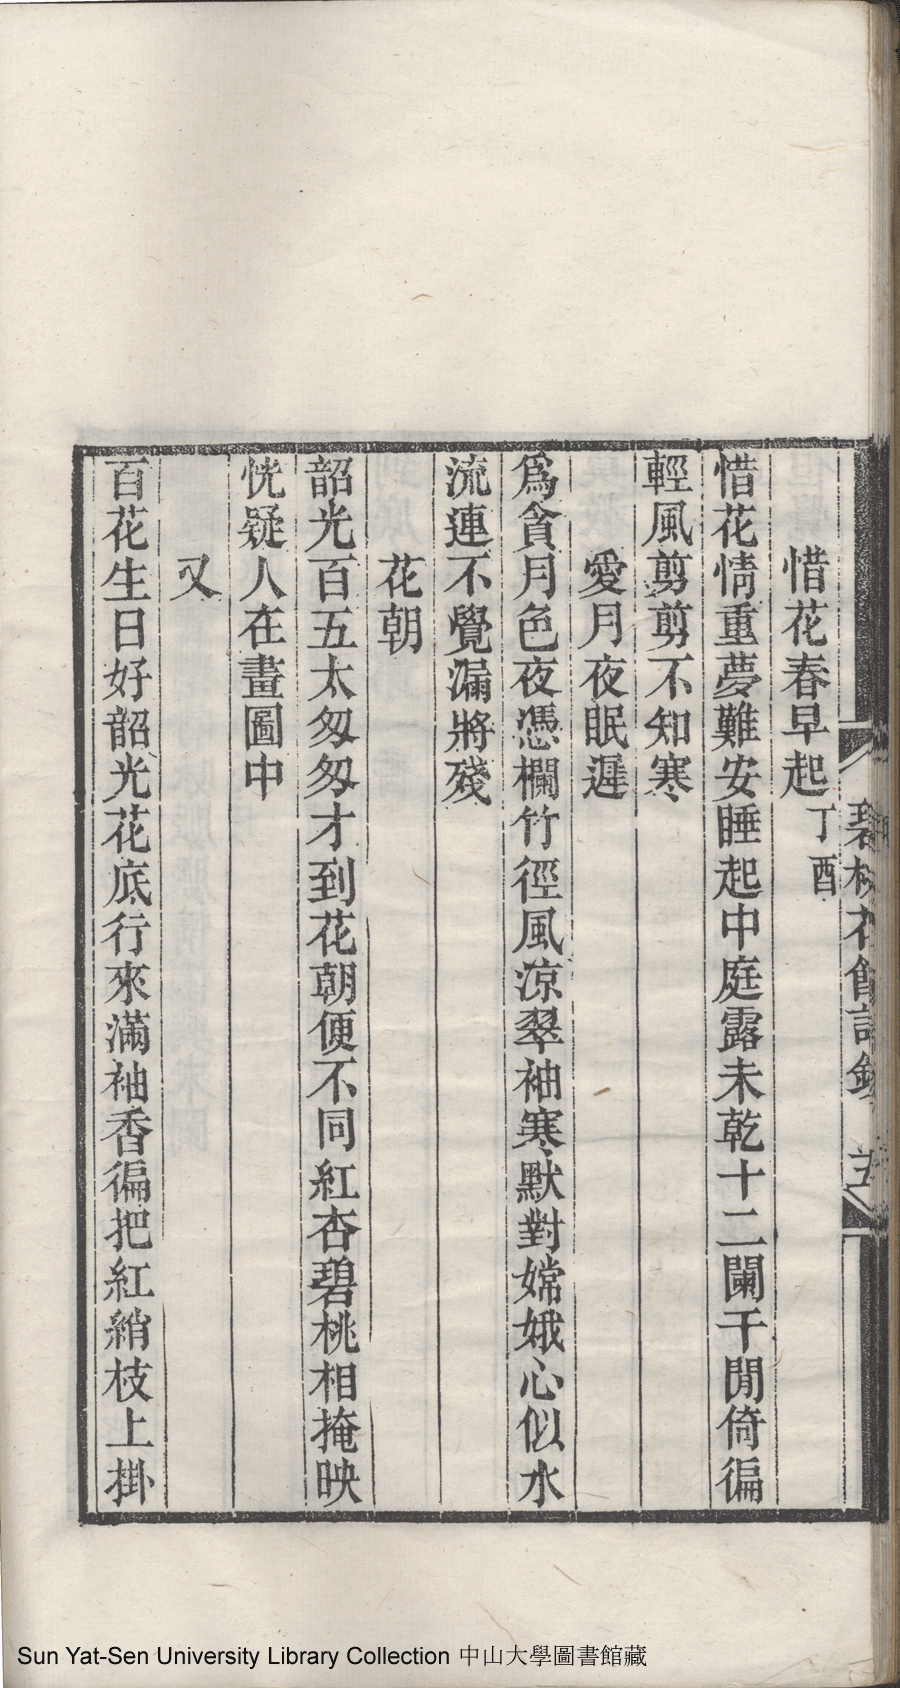 惜花春早起丁酉
惜花情重夢難安睡起中庭露未乾十二闌干閒倚徧
輕風剪剪不知寒
愛月夜眠遲
爲貪月色夜憑欄竹徑風凉翠袖寒默對嫦娥心似水
流連不覺漏將殘
花朝
韶光百五太匆匆才到花朝便不同紅杏碧桃相掩映
恍疑人在畫圖中
又
百花生日好韶光花底行來滿袖香徧把紅綃枝上掛
Sun Yat-Sen University Library Collection 中山大學圖書館藏